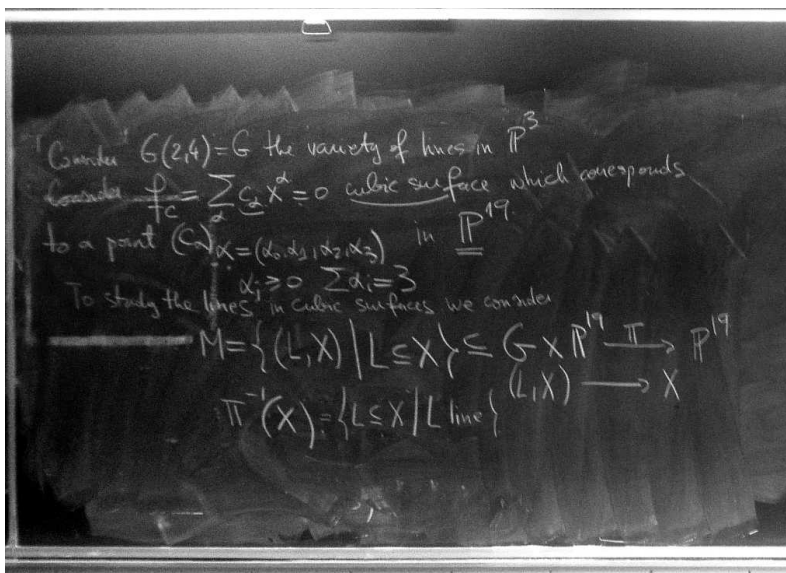 Consider G(2,4)=G the variety of lines in ℙ³
Consider f_c = Σ_α c_α x^α = 0 cubic surface which corresponds
to a point (c_α) α=(α₀,α₁,α₂,α₃) in ℙ¹⁹.
αᵢ ≥ 0 Σαᵢ=3
To study the lines in cubic surfaces we consider
M={(L,X) | L⊆X} ⊆ G × ℙ¹⁹ —π→ ℙ¹⁹
(L,X) ⟶ X
π⁻¹(X)={L⊆X | L line}